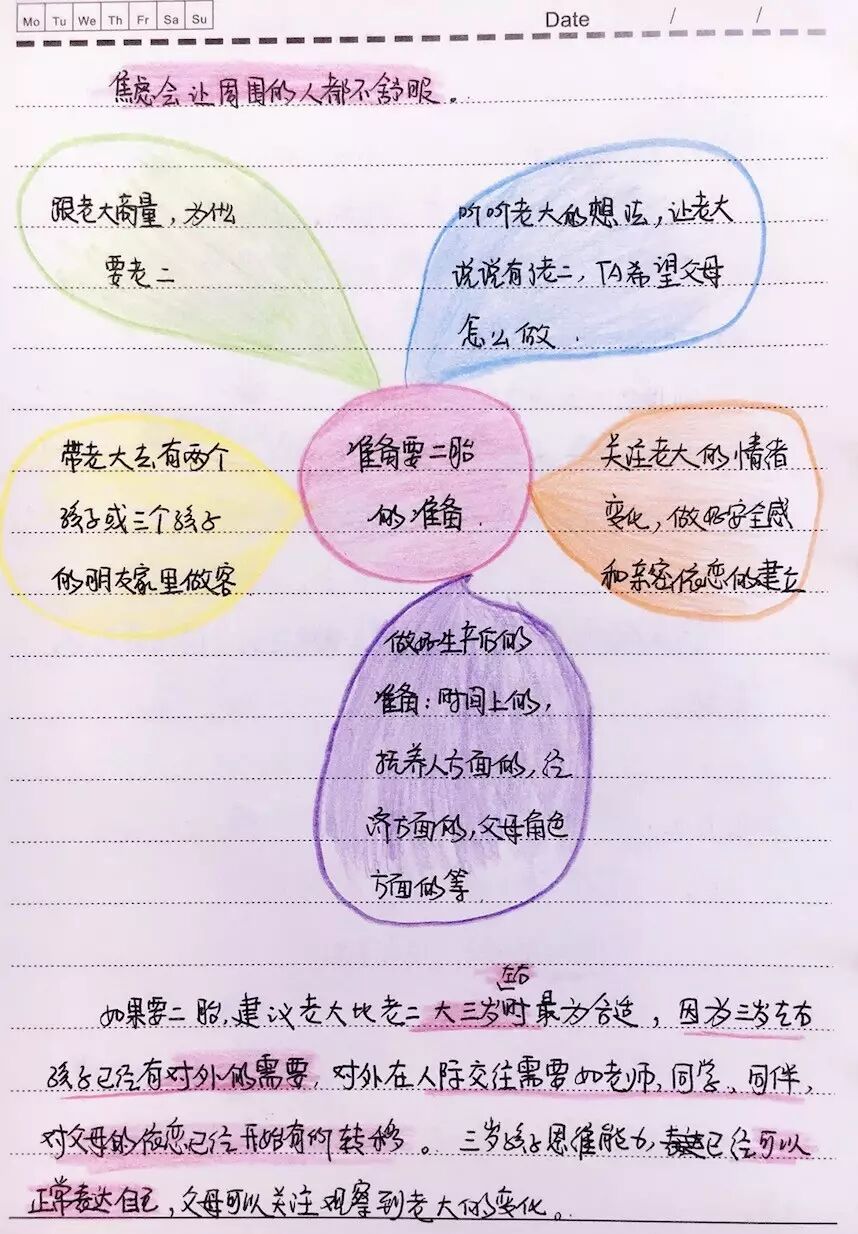 Mo Tu We Th Fr Sa Su
Date / /
焦虑会让周围的人都不舒服。
跟老大商量，为什么
要老二
听听老大的想法，让老大
说说有了老二，TA希望父母
怎么做．
带老大去有两个
孩子或三个孩子
的朋友家里做客
准备要二胎
的准备．
关注老大的情绪
变化，做好安全感
和亲密依恋的建立
做好生产后的
准备：时间上的，
抚养人方面的，经
济方面的，父母角色
方面的等
左右
如果要二胎，建议老大比老二大三岁时最为合适，因为三岁左右
孩子已经有对外的需要，对外在人际交往需要如老师、同学、同伴，
对父母的依恋已经开始有所转移。三岁孩子思维能力，已经可以
正常表达自己，父母可以关注观察到老大的变化。